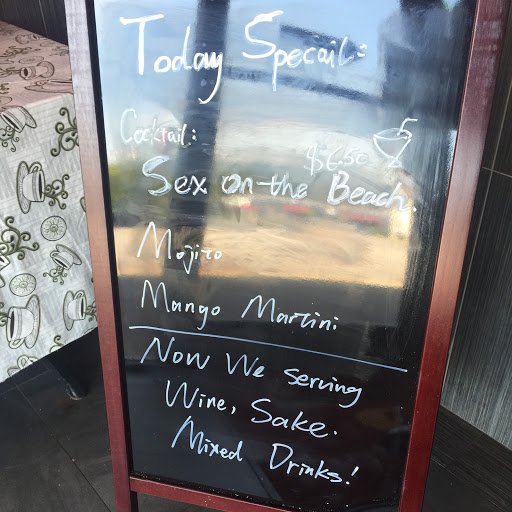 Today Specail:
Cocktail:
$6.50
Sex on the Beach.
Mojito
Mango Martini
Now We serving
Wine, Sake.
Mixed Drinks!